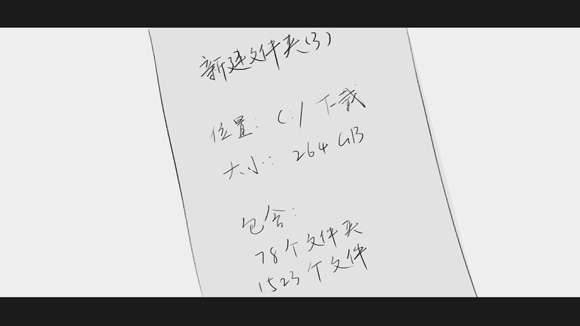 新建文件夹(3)
位置: C:/下载
大小: 264 GB
包含:
78个文件夹
1523个文件